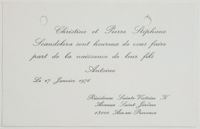 Christine et Pierre Stéphane
sont heureux de vous faire
part de la naissance de leur fils
Antoine
Le 27 Janvier 1976
Résidence Sainte Victoire
Avenue Saint Jérôme
13100 Aix en Provence